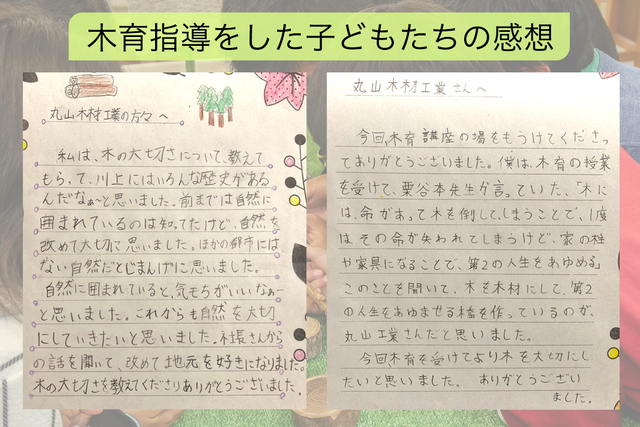 木育指導をした子どもたちの感想
丸山木材工業の方々へ
私は、木の大切さについて、教えて
もらって、川上にはいろんな歴史がある
んだなぁ〜と思いました。前までは自然に
囲まれているのは知ってたけど、自然を
改めて大切に思いました。ほかの都市には
ない自然だとじまんげに思いました。
自然に囲まれていると、気もちがいいなぁー
と思いました。これからも自然を大切
にしていきたいと思いました。社長さんから
の話を聞いて、改めて地元を好きになりました。
木の大切さを教えてくださりありがとうございました。
丸山木材工業さんへ
今回、木育講座の場をもうけてくださっ
てありがとうございました。僕は、木育の授業
を受けて、栗谷本先生が言っていた、「木に
は、命があって木を倒してしまうことで、1度
は、その命が失われてしまうけど、家の柱
や家具になることで、第2の人生をあゆめる」
このことを聞いて、木を木材にして、第2
の人生をあゆませる橋を作っているのが、
丸山工業さんだと思いました。
今回、木育を受けてより木を大切にし
たいと思いました。ありがとうござい
ました。